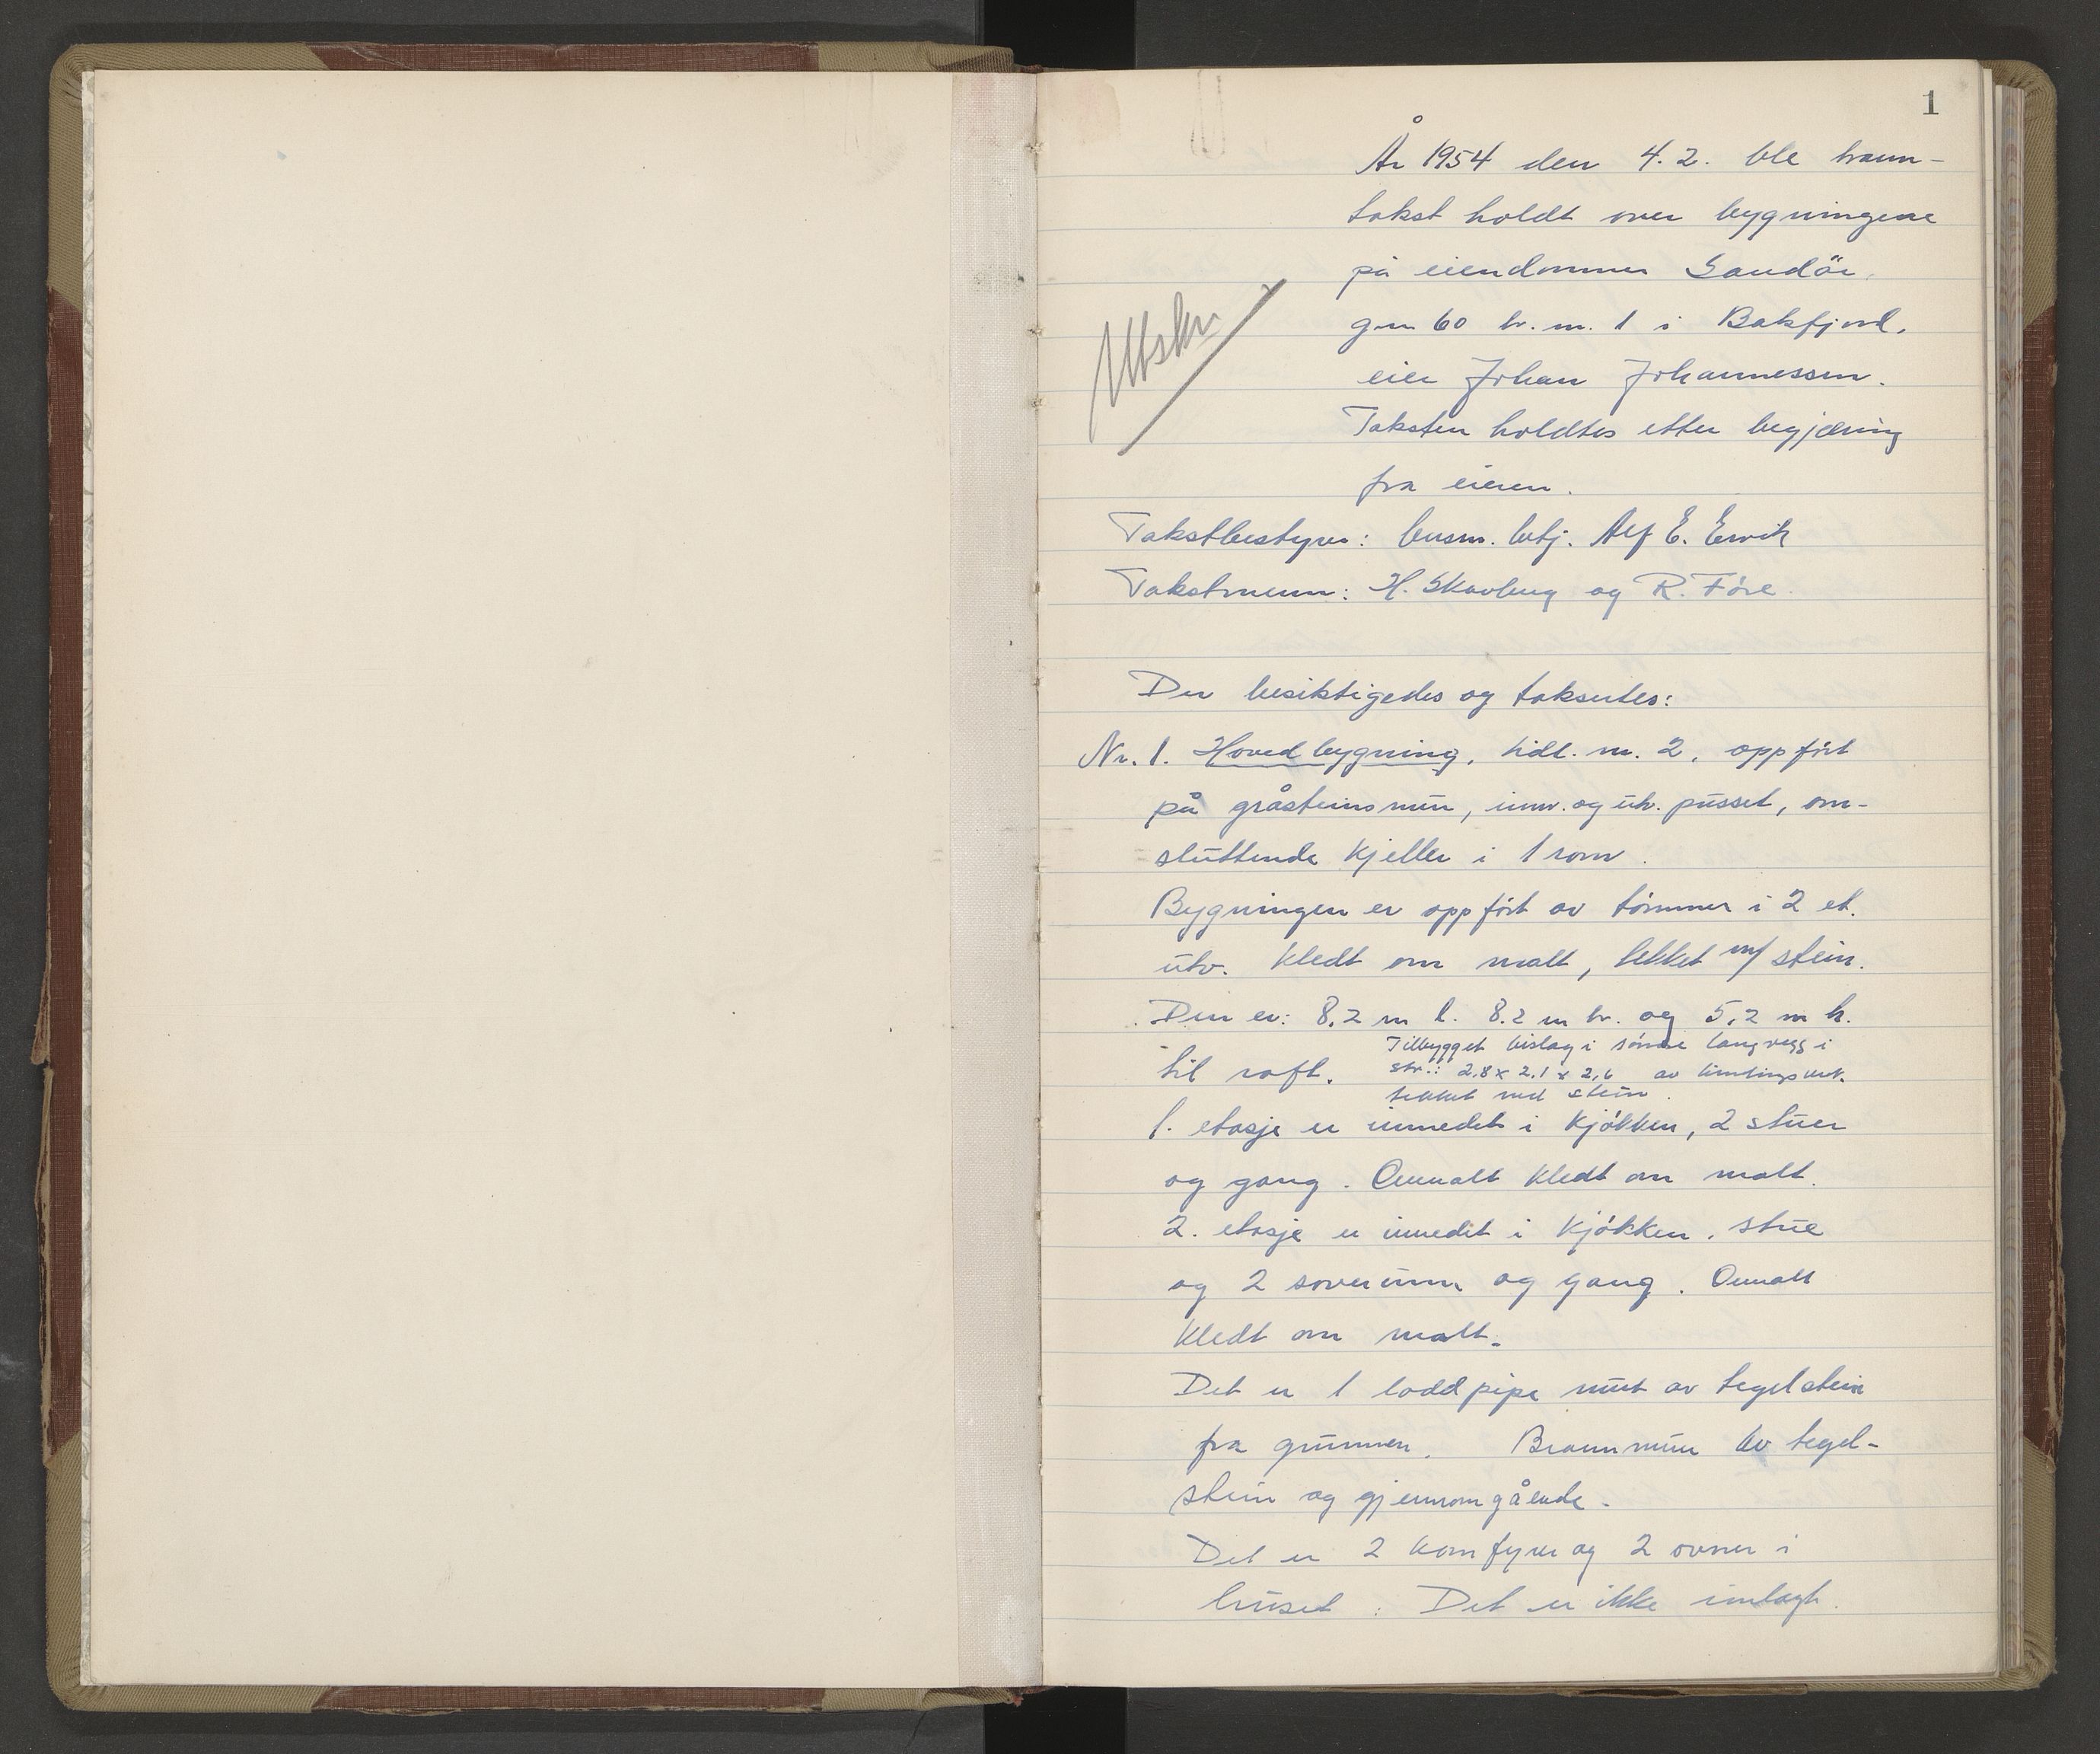 1
År 1954 den 4.2. ble brann-
takst holdt over bygningene
på eiendommen Sandör,
gnr 60 br. nr. 1 i Bakfjord,
eier Johan Johannessen.
Utskr
Taksten holdtes etter begjæring
fra eieren.
Takstbestyrer: lensm. betj. Alf E. Ervik
Takstmenn: H. Skavberg og R. Före
Der besiktigedes og taksertes:
Nr. 1. Hovedbygning, tidl. nr. 2, oppfört
på gråsteinsmur, innv. og utv. pusset, om-
sluttende kjeller i 1 rom.
Bygningen er oppfört av tömmer i 2 et.
utv. kledt om malt, tekket m/ stein.
Den er: 8,2 m l. 8.2 m br. og 5,2 m h.
til raft. Tilbygget bislag i söndre langvegg i
str.: 2,8 x 2,1 x 2,6 av bindingsverk.
tekket med stein.
1. etasje er innredet i kjökken, 2 stuer
og gang. Overalt kledt om malt.
2. etasje er innredet i kjökken, stue
og 2 soverum og gang. Overalt
kledt om malt.
Det er 1 lodd pipe murt av tegelstein
fra grunnen. Brannmur av tegel-
stein og gjennomgående.
Det er 2 komfyrer og 2 ovner i
huset. Det er ikke innlagt.